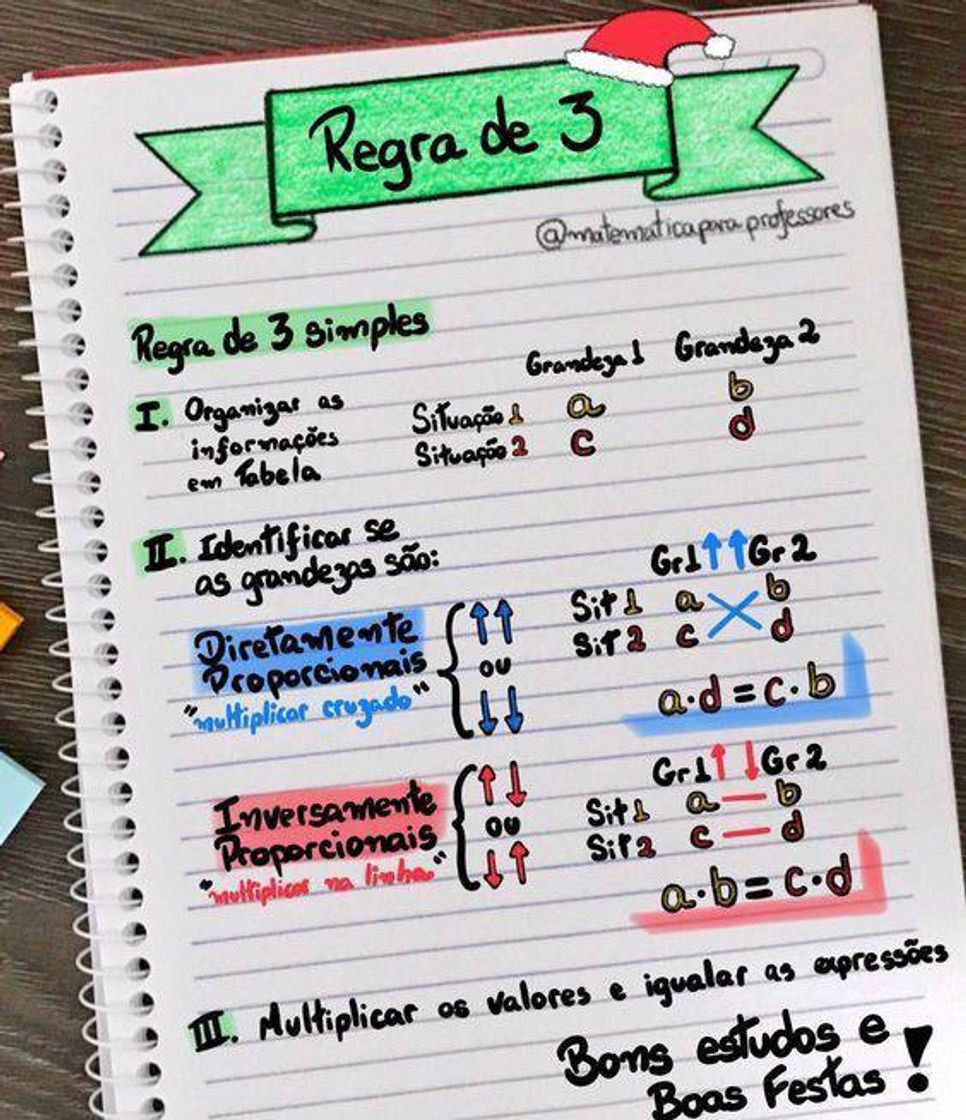 Regra de 3
@matematicaparaprofessores
Regra de 3 simples
Grandeza 1 Grandeza 2
I. Organizar as informações em Tabela
Situação 1 a b
Situação 2 c d
II. Identificar se
as grandezas são:
Diretamente
Proporcionais
"multiplicar cruzado"
↑↑
ou
↓↓
Gr1 ↑↑ Gr2
Sit 1 a b
Sit 2 c d
a·d = c·b
Inversamente
Proporcionais
"multiplicar na linha"
↑↓
ou
↓↑
Gr1 ↑↓ Gr2
Sit 1 a — b
Sit 2 c — d
a·b = c·d
III. Multiplicar os valores e igualar as expressões
Bons estudos e
Boas Festas!